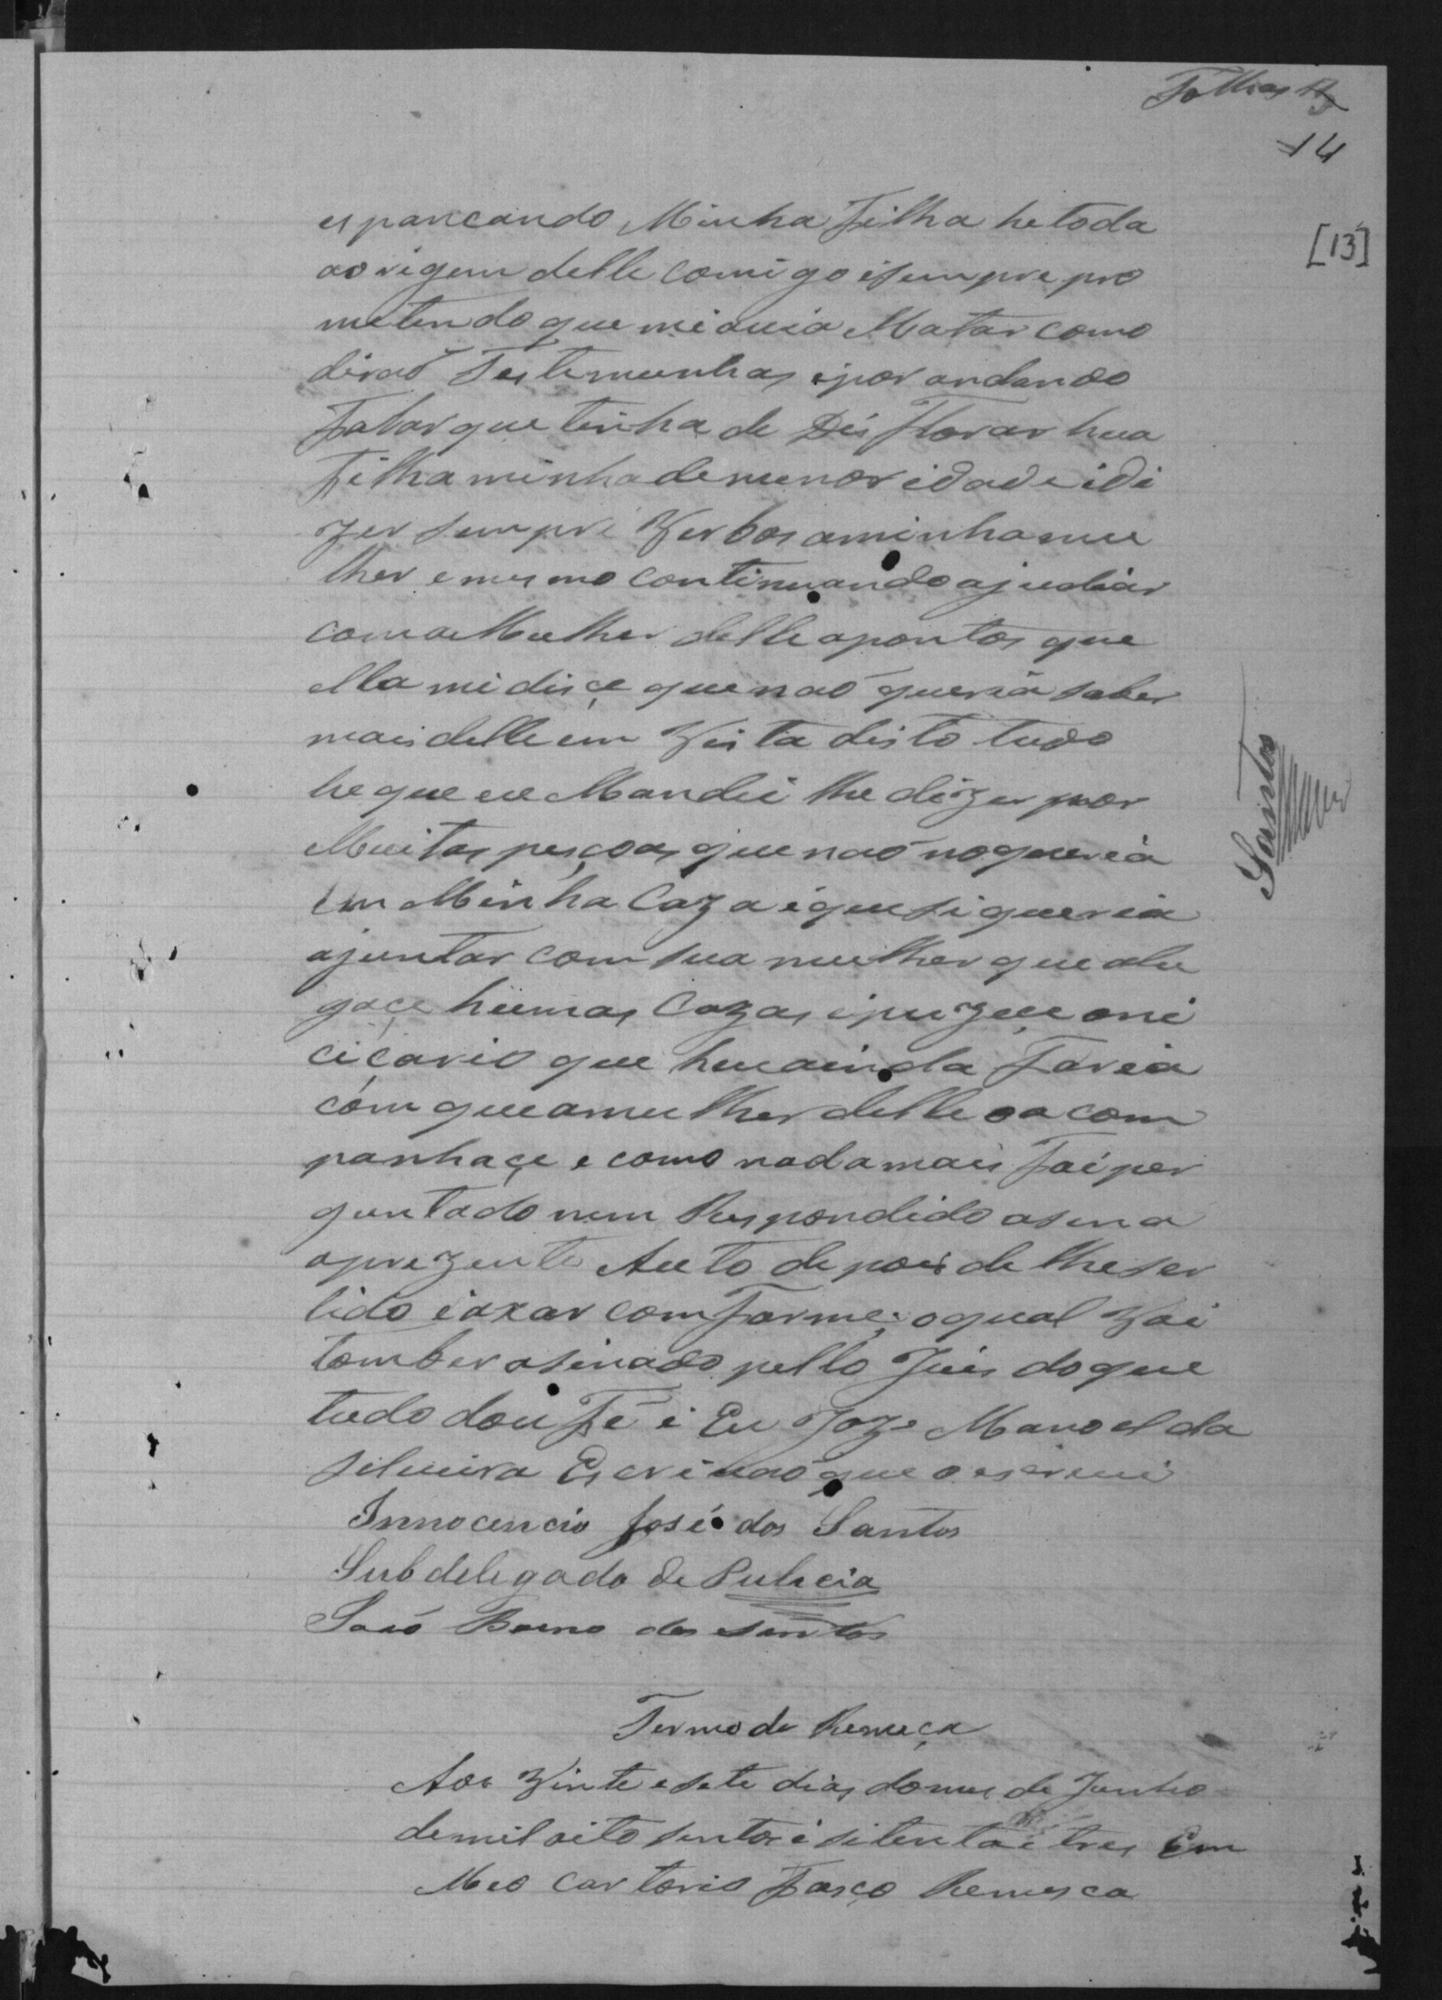 Folhas 13
14
[13]
espancando Minha Filha he toda
aorigem delle comigo isempre pro
metendo que mi avia Matar como
diraõ Testemunhas ipor andando
Falar que tinha de Dis Florar hua
Filha minha de menor idade idi
zer sempre Verbos aminha mu
lher emesmo continuando ajudiar
com a Mulher delle apontos que
ella mi disçe que naõ queria saber
mais delle em Vista disto tudo
he que eu Mandei lhe dizer por
Muitas pesçoas que naõ no queria
em Minha Caza ique si queria
ajuntar com sua mulher que alu
gaçe humas Cazas ipuzeçe oni
ciçario que hu ainda Faria
com que a mulher delle oa com
panhaçe e como nada mais Foi per
guntado nem Respondido asina
oprezente Auto depois de lhe ser
lido iaxar comForme; oqual Vai
tomber asinado pello Juis do que
tudo dou Fé i Eu Joze Manoel da
silveira Escrivaõ que o escrivi
Innocencio José dos Santos
Subdelegado de Pulicia
Joaõ Bueno dos Santos
Santos
Termo de Remeça
Aos Vinte e sete dias do mes de Junho
de mil oito sentos i sitenta i tres Em
Meo Cartorio Fasço Remesca